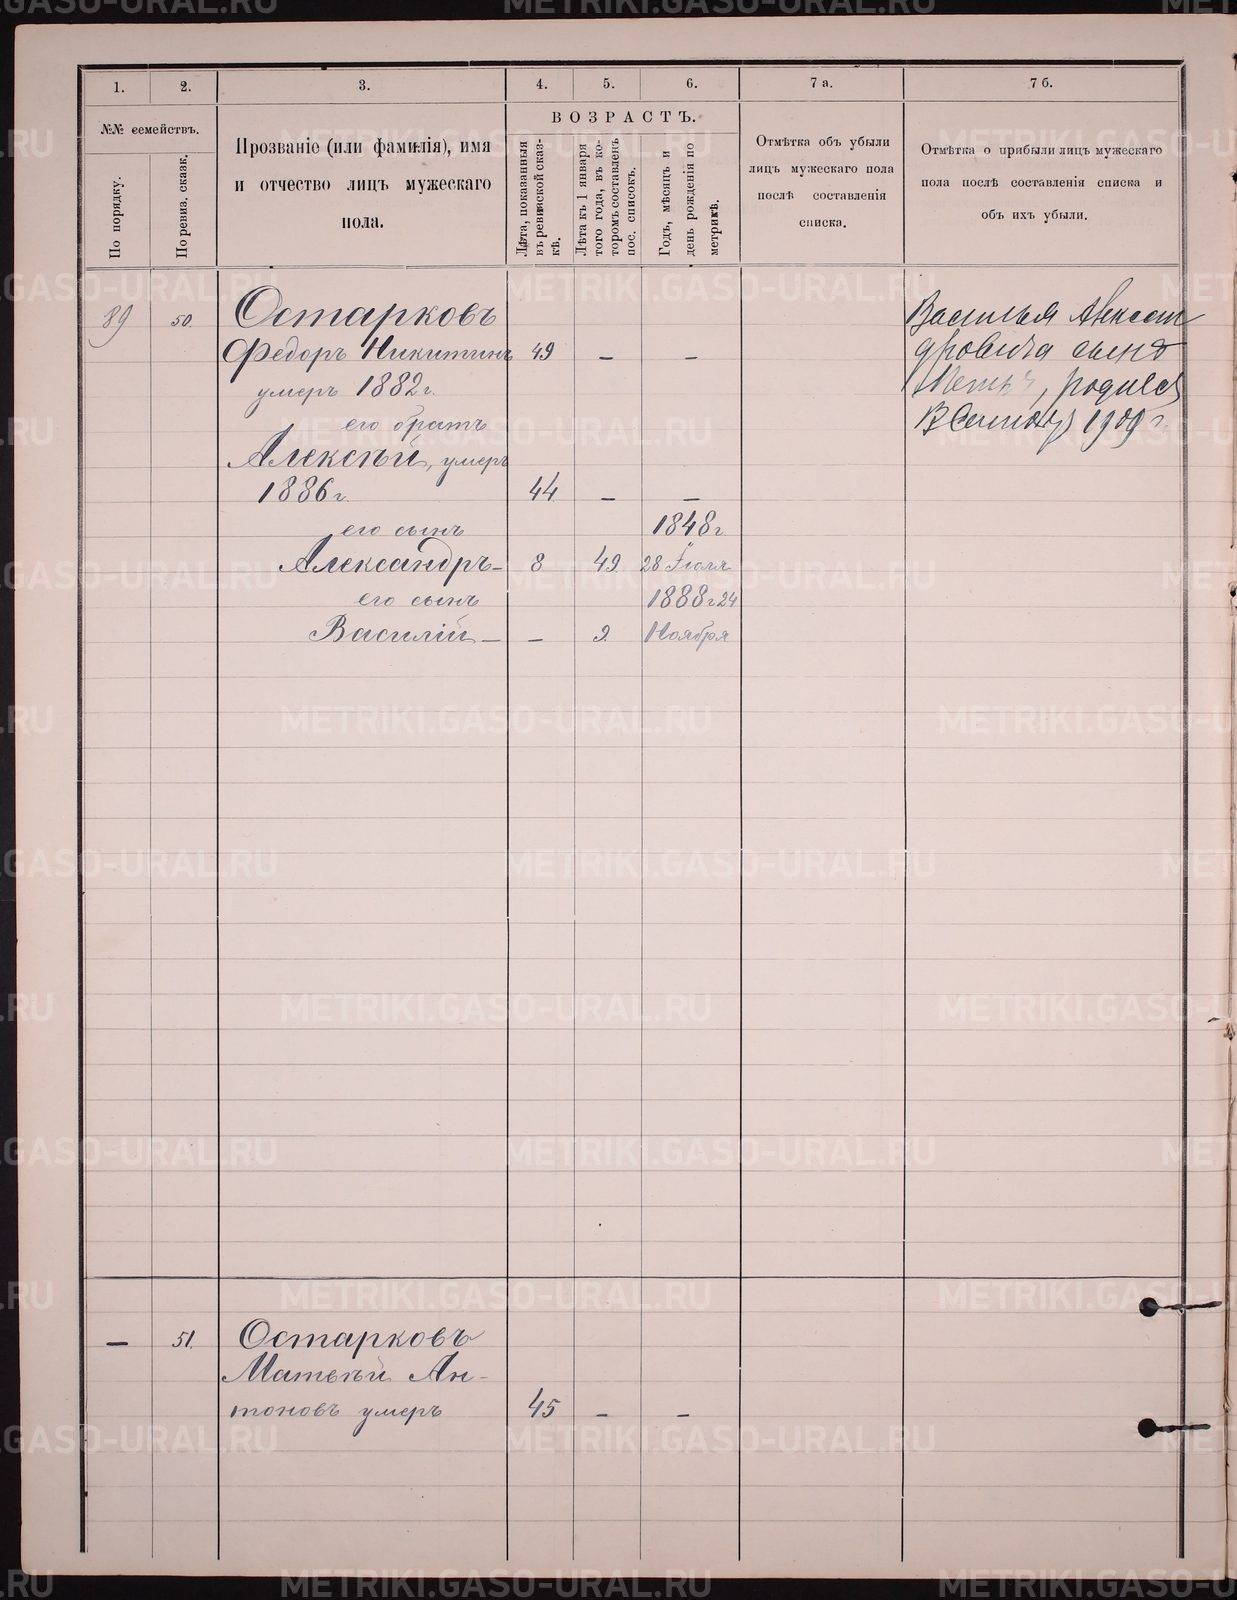 1.
2.
3.
4.
5.
6.
7 а.
7 б.
№№ семействъ.
По порядку.
По ревиз. сказк.
Прозваніе (или фамилія), имя
и отчество лицъ мужескаго
пола.
ВОЗРАСТЪ.
Лѣта, показанныя
въ ревизской сказ-
кѣ.
Лѣта къ 1 января
того года, въ ко-
торомъ составленъ
пос. списокъ.
Годъ, мѣсяцъ и
день рожденія по
метрикѣ.
Отмѣтка объ убыли
лицъ мужескаго пола
послѣ составленія
списка.
Отмѣтка о прибыли лицъ мужескаго
пола послѣ составленія списка и
объ ихъ убыли.
89 50. Остарковъ
Федоръ Никитинъ 49 — —
умеръ 1882 г.
его братъ
Алексѣй, умеръ
1886 г. 44 — —
его сынъ 1848 г
Александръ — 8 49 28 Іюля
его сынъ 1888 г 24
Василій — — 9 Ноября
Василья Алексан
дровича сынъ
родился
В 1909 г.
— 51. Остарковъ
Матвѣй Ан-
тоновъ умеръ 45 — —
METRIKI.GASO-URAL.RU